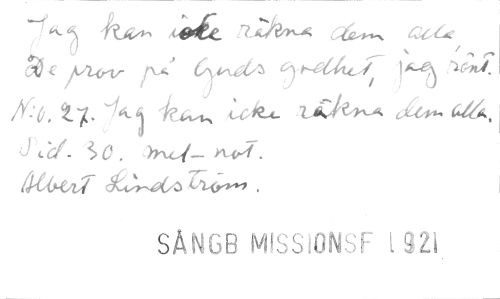 Jag kan icke räkna dem alla,
De prov på Guds godhet, jag rönt.
N:o. 27. Jag kan icke räkna dem alla.
Sid. 30. mel-not.
Albert Lindström.
SÅNGB MISSIONSF 1921